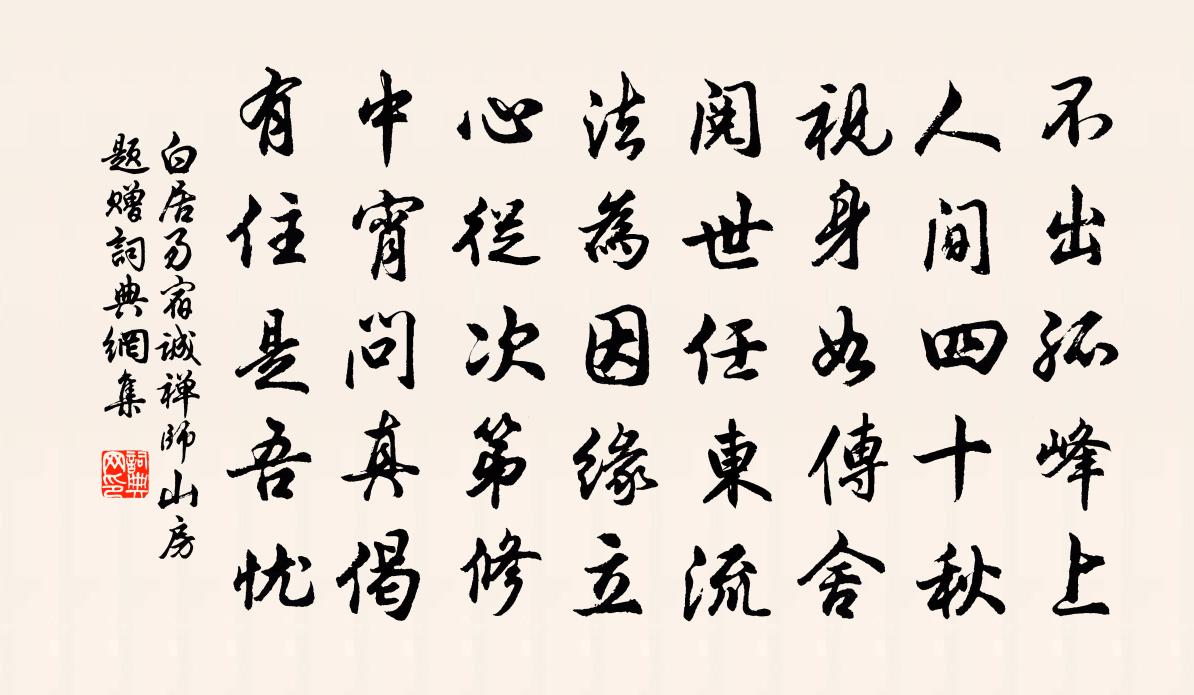 不出孤峰上
人間四十秋
視身如傳舍
閱世任東流
法為因緣立
心從次第修
中宵問真偈
有住是吾忧
白居易宿誠禅師山房
题赠詞典網集
詞典
网印